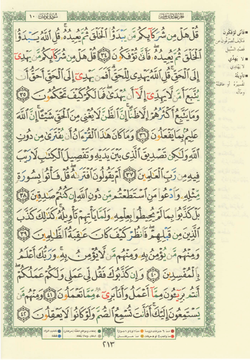 قُلْ هَلْ مِن شُرَكَائِكُم مَّن يَبْدَؤُاْ الْخَلْقَ ثُمَّ يُعِيدُهُ قُلِ اللَّهُ يَبْدَؤُاْ
الْخَلْقَ ثُمَّ يُعِيدُهُ فَأَنَّى تُؤْفَكُونَ ٣٤ قُلْ هَلْ مِن شُرَكَائِكُم مَّن يَهْدِي
إِلَى الْحَقِّ قُلِ اللَّهُ يَهْدِي لِلْحَقِّ أَفَمَن يَهْدِي إِلَى الْحَقِّ أَحَقُّ أَن
يُتَّبَعَ أَمَّن لَّا يَهِدِّي إِلَّا أَن يُهْدَى فَمَا لَكُمْ كَيْفَ تَحْكُمُونَ ٣٥
وَمَا يَتَّبِعُ أَكْثَرُهُمْ إِلَّا ظَنًّا إِنَّ الظَّنَّ لَا يُغْنِي مِنَ الْحَقِّ شَيْئًا إِنَّ اللَّهَ
عَلِيمٌ بِمَا يَفْعَلُونَ ٣٦ وَمَا كَانَ هَذَا الْقُرْءَانُ أَن يُفْتَرَى مِن دُونِ
اللَّهِ وَلَكِن تَصْدِيقَ الَّذِي بَيْنَ يَدَيْهِ وَتَفْصِيلَ الْكِتَابِ لَا رَيْبَ
فِيهِ مِن رَّبِّ الْعَالَمِينَ ٣٧ أَمْ يَقُولُونَ افْتَرَاهُ قُلْ فَأْتُواْ بِسُورَةٍ
مِّثْلِهِ وَادْعُواْ مَنِ اسْتَطَعْتُم مِّن دُونِ اللَّهِ إِن كُنتُمْ صَادِقِينَ ٣٨
بَلْ كَذَّبُواْ بِمَا لَمْ يُحِيطُواْ بِعِلْمِهِ وَلَمَّا يَأْتِهِمْ تَأْوِيلُهُ كَذَلِكَ كَذَّبَ
الَّذِينَ مِن قَبْلِهِمْ فَانظُرْ كَيْفَ كَانَ عَاقِبَةُ الظَّالِمِينَ ٣٩
وَمِنْهُم مَّن يُؤْمِنُ بِهِ وَمِنْهُم مَّن لَّا يُؤْمِنُ بِهِ وَرَبُّكَ أَعْلَمُ
بِالْمُفْسِدِينَ ٤٠ وَإِن كَذَّبُوكَ فَقُل لِّي عَمَلِي وَلَكُمْ عَمَلُكُمْ
أَنتُم بَرِيئُونَ مِمَّا أَعْمَلُ وَأَنَا بَرِيءٌ مِّمَّا تَعْمَلُونَ ٤١ وَمِنْهُم مَّن
يَسْتَمِعُونَ إِلَيْكَ أَفَأَنتَ تُسْمِعُ الصُّمَّ وَلَوْ كَانُواْ لَا يَعْقِلُونَ ٤٢
٢١٣